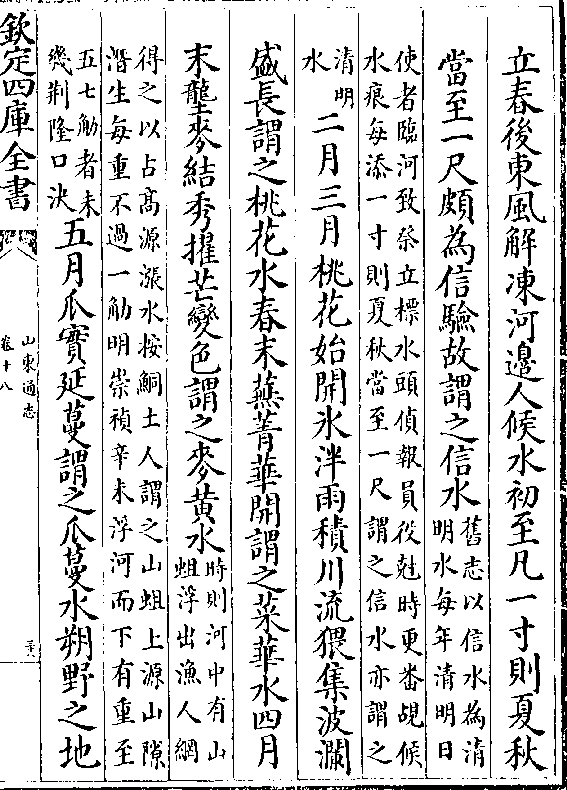 立春後東風解凍河邉人候水初至凡一寸則夏秋
當至一尺頗為信驗故謂之信水
舊志以信水為清
明水每年清明日
使者臨河致祭立標水頭偵報員役尅時更番覘候
水痕每添一寸則夏秋當至一尺謂之信水亦謂之
清明
水
二月三月桃花始開氷泮雨積川流猥集波瀾
盛長謂之桃花水春末蕪菁華開謂之菜華水四月
末壟麥結秀擢芒變色謂之麥黃水
時則河中有山
蛆浮出漁人網
得之以占髙源漲水按鮦土人謂之山蛆上源山隙
潛生每重不過一觔明崇禎辛未浮河而下有重至
五七觔者未
幾荆隆口決
五月瓜實延蔓謂之瓜蔓水朔野之地
欽定四庫全書
山東通志
卷十八